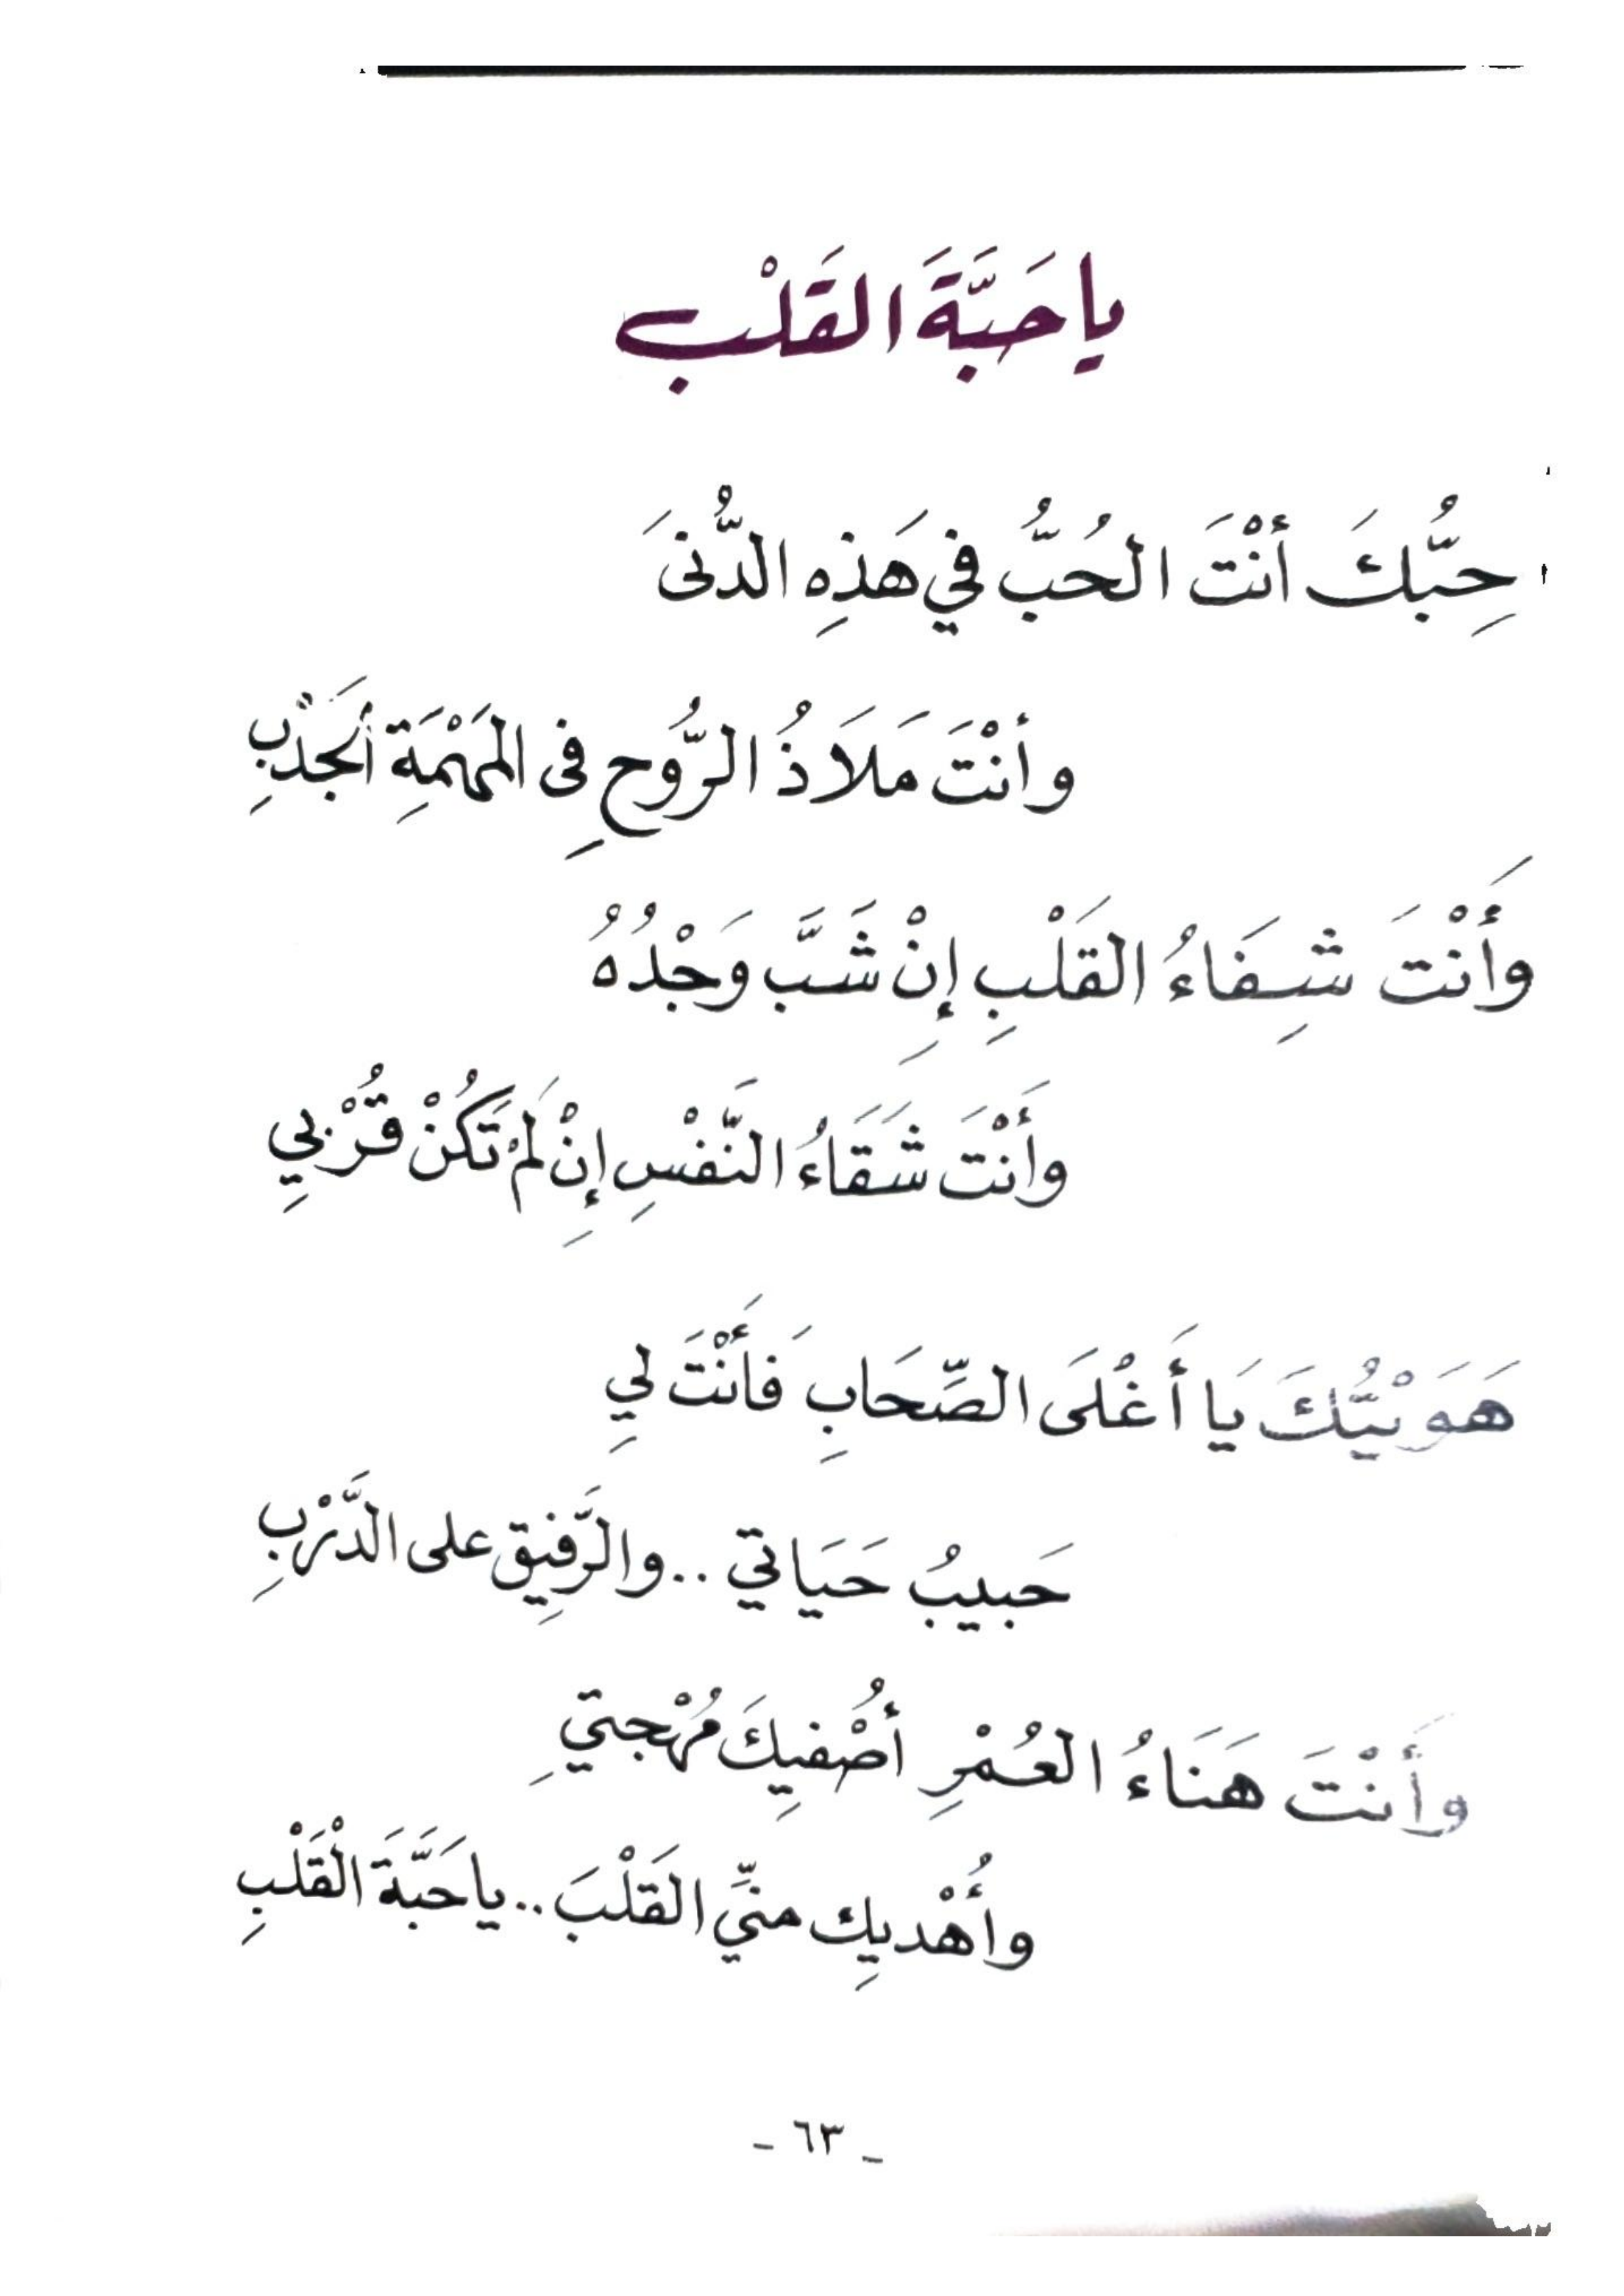 يا حَبَّةَ القَلْب
حِبُّكَ أنْتَ الحُبُّ في هَذِهِ الدُّنىَ
وأنْتَ مَلَاذُ الرُّوحِ فى المَهْمَةِ الجَدْبِ
وَأَنْتَ شِفَاءُ القَلْبِ إِنْ شَبَّ وَجْدُهُ
وأَنْتَ شَقَاءُ النَّفْسِ إِنْ لَمْ تَكُنْ قُرْبِي
هَوَيْتُكَ يَا أَغْلَى الصِّحَابِ فَأَنْتَ لِي
حَبيبُ حَيَاتي .. والرَّفِيق على الدَّرْبِ
وأَنْتَ هَنَاءُ العُمْرِ أُصْفِيكَ مُهْجتيِ
وأُهْديِك منيِّ القَلْبَ .. يا حَبَّةَ الْقَلْبِ
- ٦٣ -